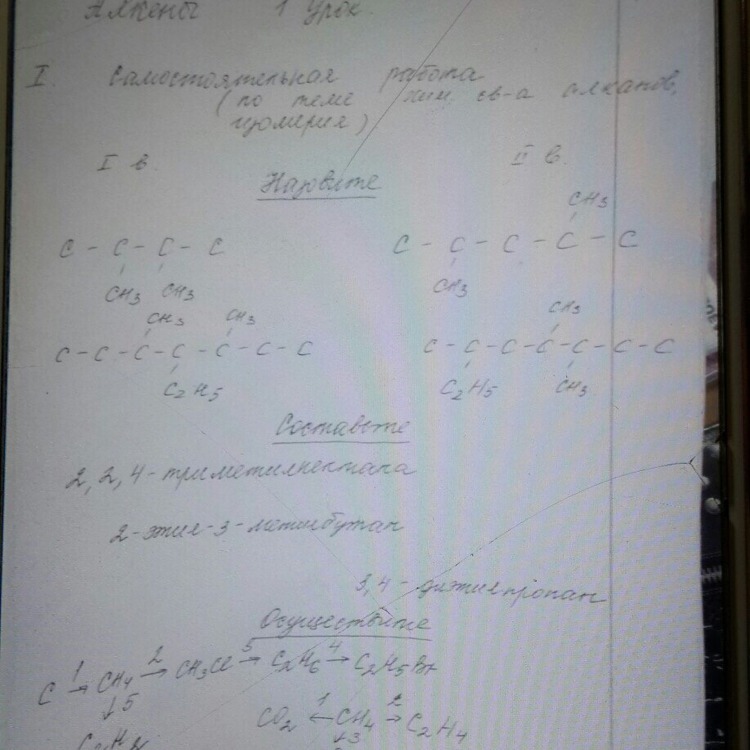 Алкены 1 урок.
I. Самостоятельная работа
(по теме хим. св-а алканов,
изомерия)
I в. II в.
Назовите
CH3
C - C - C - C C - C - C - C - C
CH3 CH3 CH3
CH3 CH3 CH3
C - C - C - C - C - C - C C - C - C - C - C - C - C
C2H5 C2H5 CH3
Составьте
2,2,4-триметилпентана
2-этил-3-метилбутан
3,4-диэтилпропан
Осуществите
C 1→ CH4 2→ CH3Cl 3→ C2H6 4→ C2H5Br
↓5 CO2 ←1 CH4 2→ C2H4
↓3